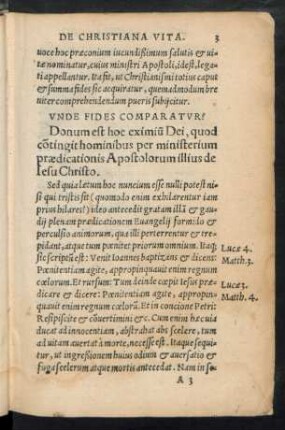 DE CHRISTIANA VITA. 3
uoce hoc præconium iucundißimum salutis e& ui-
tæ nominatur, cuius ministri Apostoli, idest, lega
ti appellantur. Ita fit, ut Christianismi totius caput
& summa fides sic acquiratur, quemadmodum bre
uiter comprehendendum pueris subijcitur.
VNDE FIDES COMPARATVR?
Donum est hoc eximiũ Dei, quod
cõtingit hominibus per ministerium
prædicationis Apostolorum illius de
Iesu Christo.
Sed quia lætum hoc nuncium esse nulli potest ni-
si qui tristis sit (quomodo enim exhilarentur iam
prius hilares?) ideo antecedit gratam illã & gaudij
plenam prædicationem Euangelij formido &
perculsio animorum, qua illi perterrentur & tre-
pidant, atque tum pœnitet priorum omnium. Itaq;
sic scriptũ est: Venit Ioannes baptizans & dicens: Lucæ 4.
Pœnitentiam agite, appropinquauit enim regnum Matth. 3.
cœlorum. Et rursum: Tum deinde cœpit Iesus præ
dicare & dicere: Pœnitentiam agite, appropin- Lucæ 3.
quauit enim regnum cœlorũ. Et in concione Petri: Matth. 4.
Resipiscite & cõuertimini &c. Cum enim hæc uia
ducat ad innocentiam, abstrahat ab scelere, tum
ad uitam auertat à morte, necesse est. Itaque sequi-
tur, ut ingreßionem huius odium & auersatio &
fuga scelerum atque mortis antecedat. Nam in so-
A 3